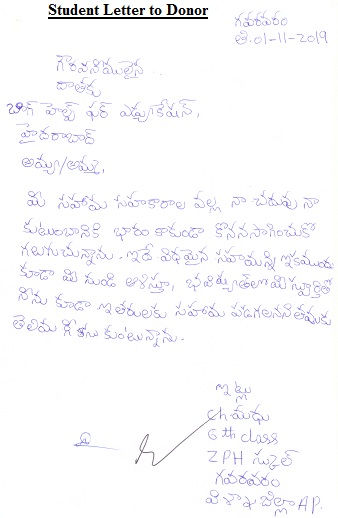 Student Letter to Donor
గవరవరం
తి.01-11-2019
గౌరవనీయులైన
దాతకు
బిగ్ హెల్ప్ ఫర్ ఎడ్యుకేషన్,
హైదరాబాద్
అయ్యా/అమ్మా,
మీ సహాయ సహకారాల వల్ల నా చదువు నా
కుటుంబానికి భారం కాకుండా కొనసాగించుకో
గలుగుచున్నాను. ఇదే విధమైన సహాయాన్ని ఇకముందు
కూడా మీ నుండి ఆశిస్తూ, భవిష్యత్ లో మీ స్పూర్తితో
నేను కూడా ఇతరులకు సహాయ పడగలనని తమకు
తెలియజేసుకుంటున్నాను.
ఇట్లు
ch మధు
6th class
ZPH స్కూల్
గవరవరం
విశాఖ జిల్లా AP.